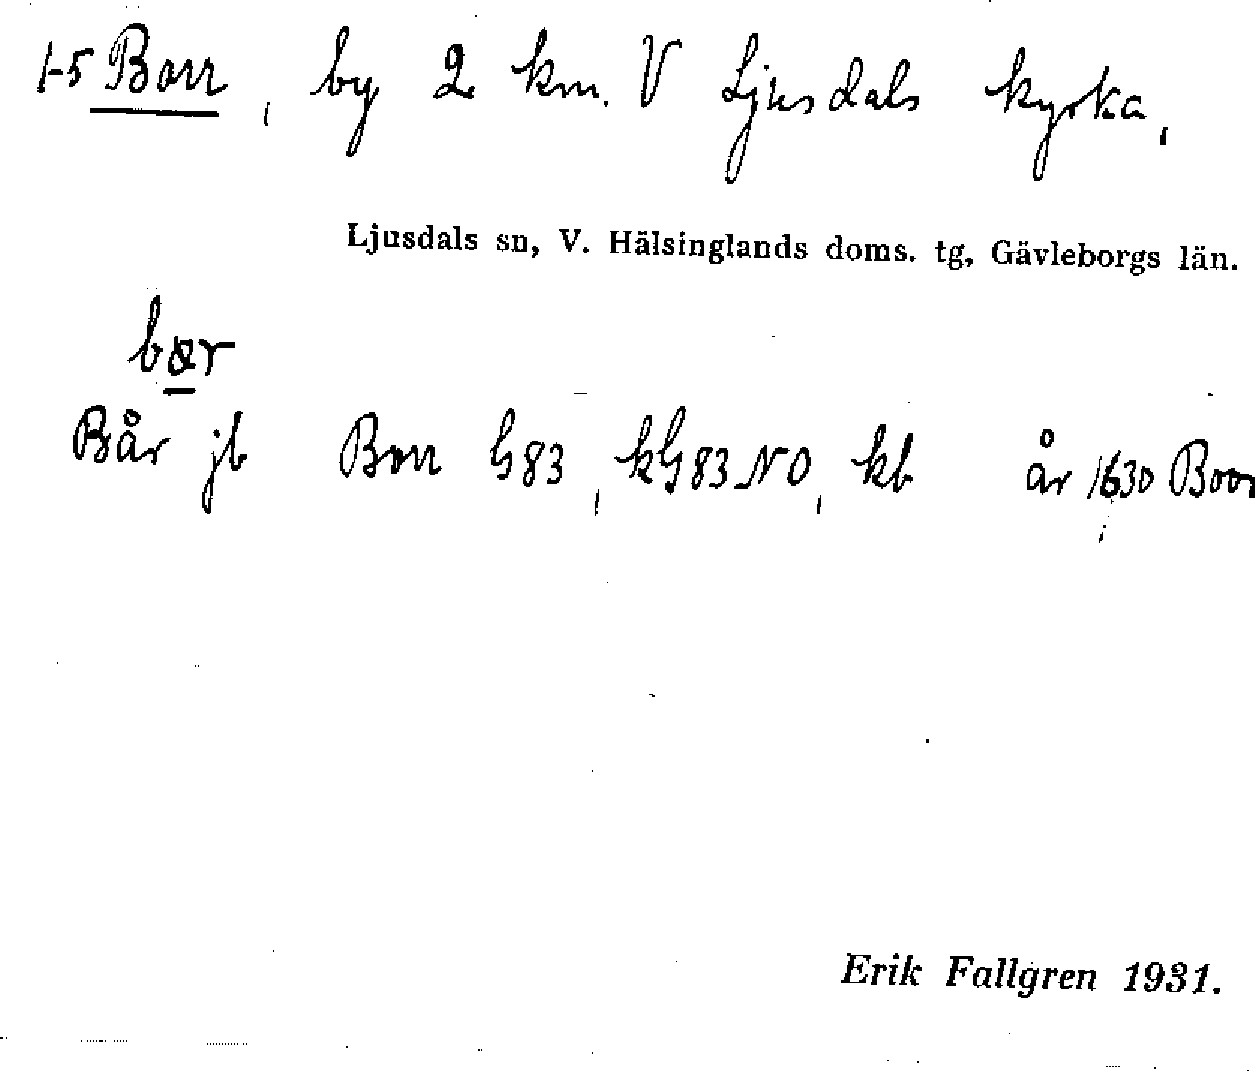 1-5 Borr, by 2 km. V Ljusdals kyrka,
Ljusdals sn, V. Hälsinglands doms. tg, Gävleborgs län.
Bår jb Borr G83, kG83NO, kb år 1630 Boor
Erik Fallgren 1931.